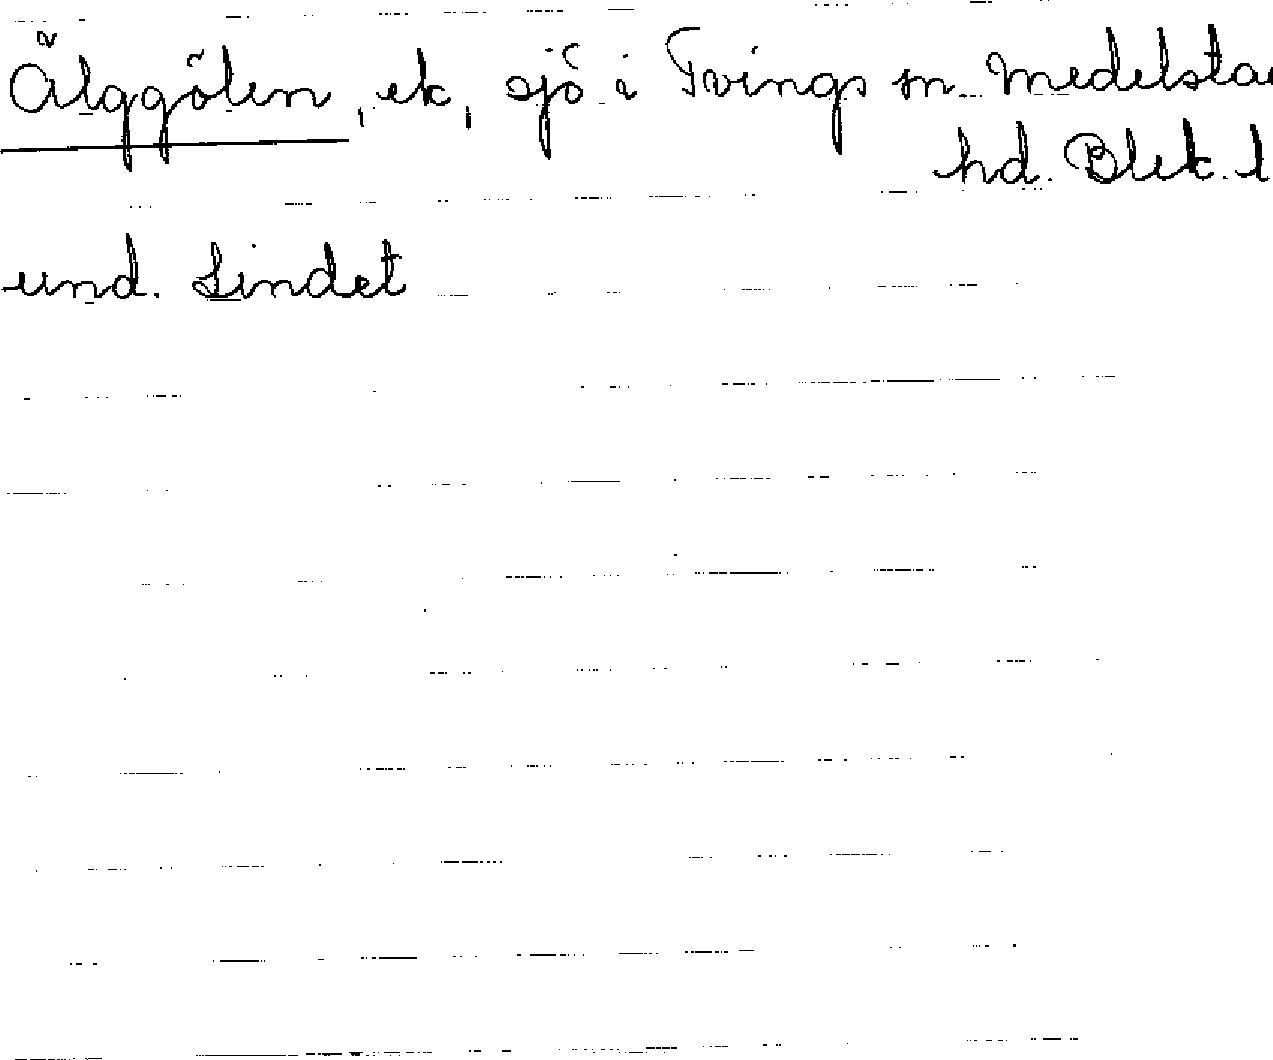 Älggölen, ek, sjö i Tvings sn. Medelsta
hd. Blek. l
und. Lindet